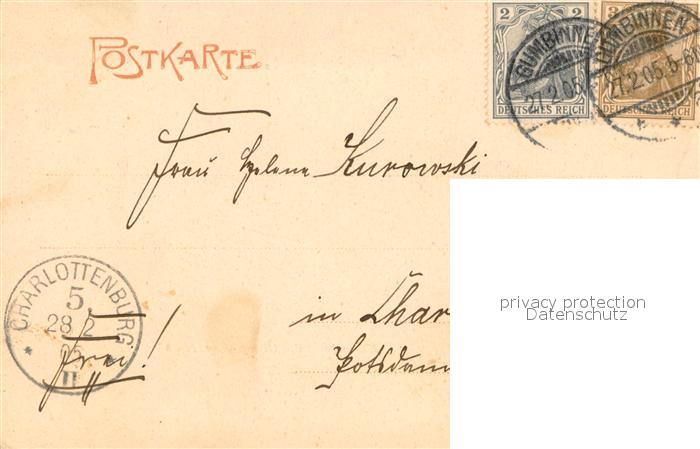 POSTKARTE
2 2
DEUTSCHES REICH
GUMBINNEN
27.2.05
3
DEUTSCHES REICH
GUMBINNEN
27.2.05. 5-6
Frau Helene Kurowski
CHARLOTTENBURG
5
28 2
05
II
Frei!
in Char
Potsdam
privacy protection
Datenschutz